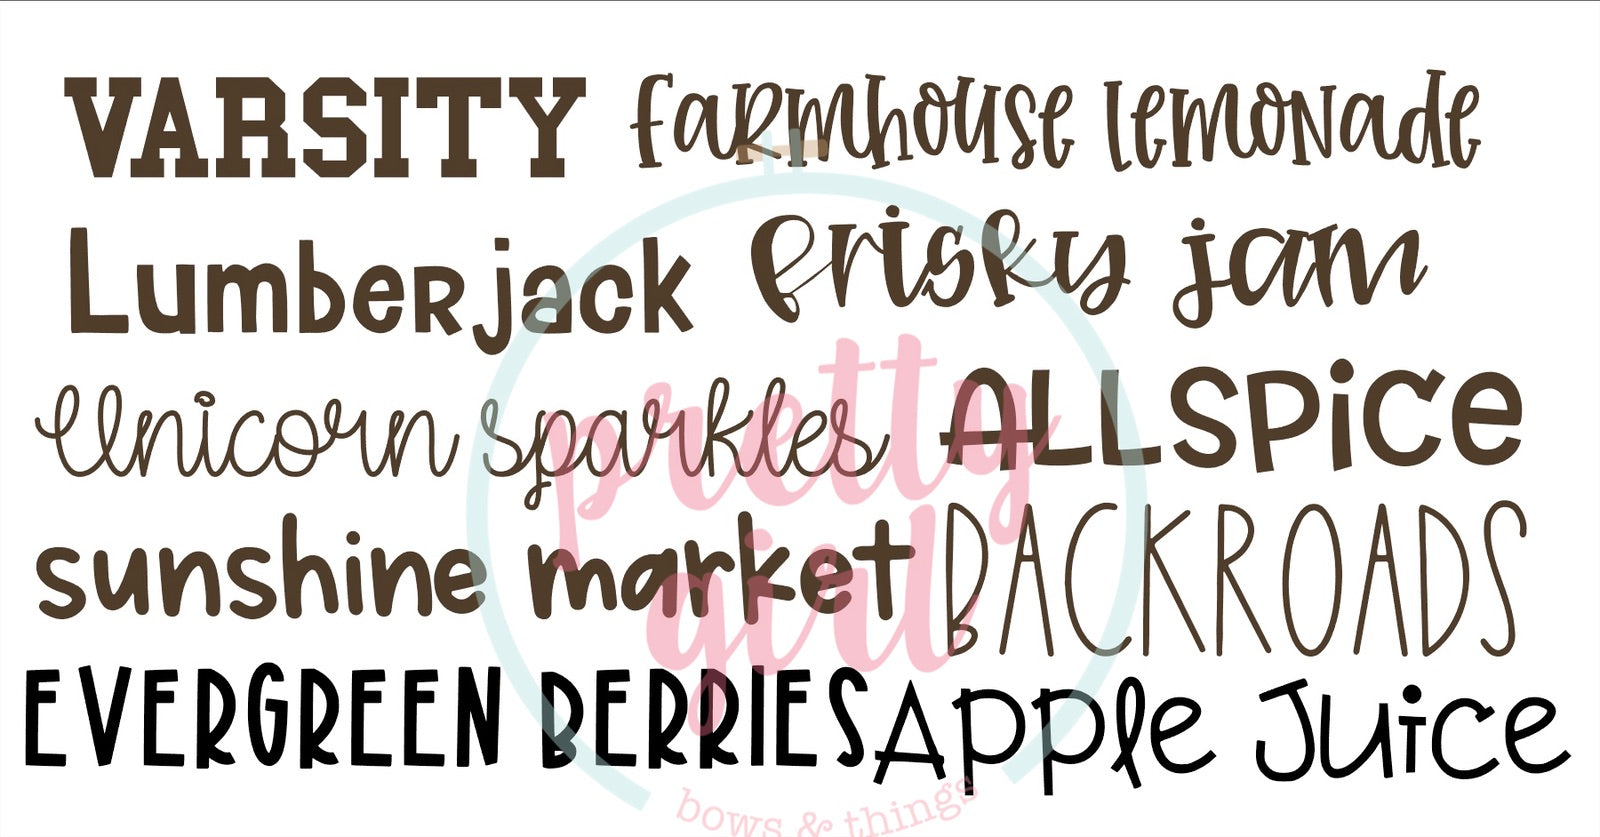 VARSITY farmhouse lemonade
Lumberjack frisky jam
Unicorn sparkles ALLSPiCe
sunshine market BACKROADS
EVERGREEN BERRIES Apple Juice
pretty
girl
bows & things